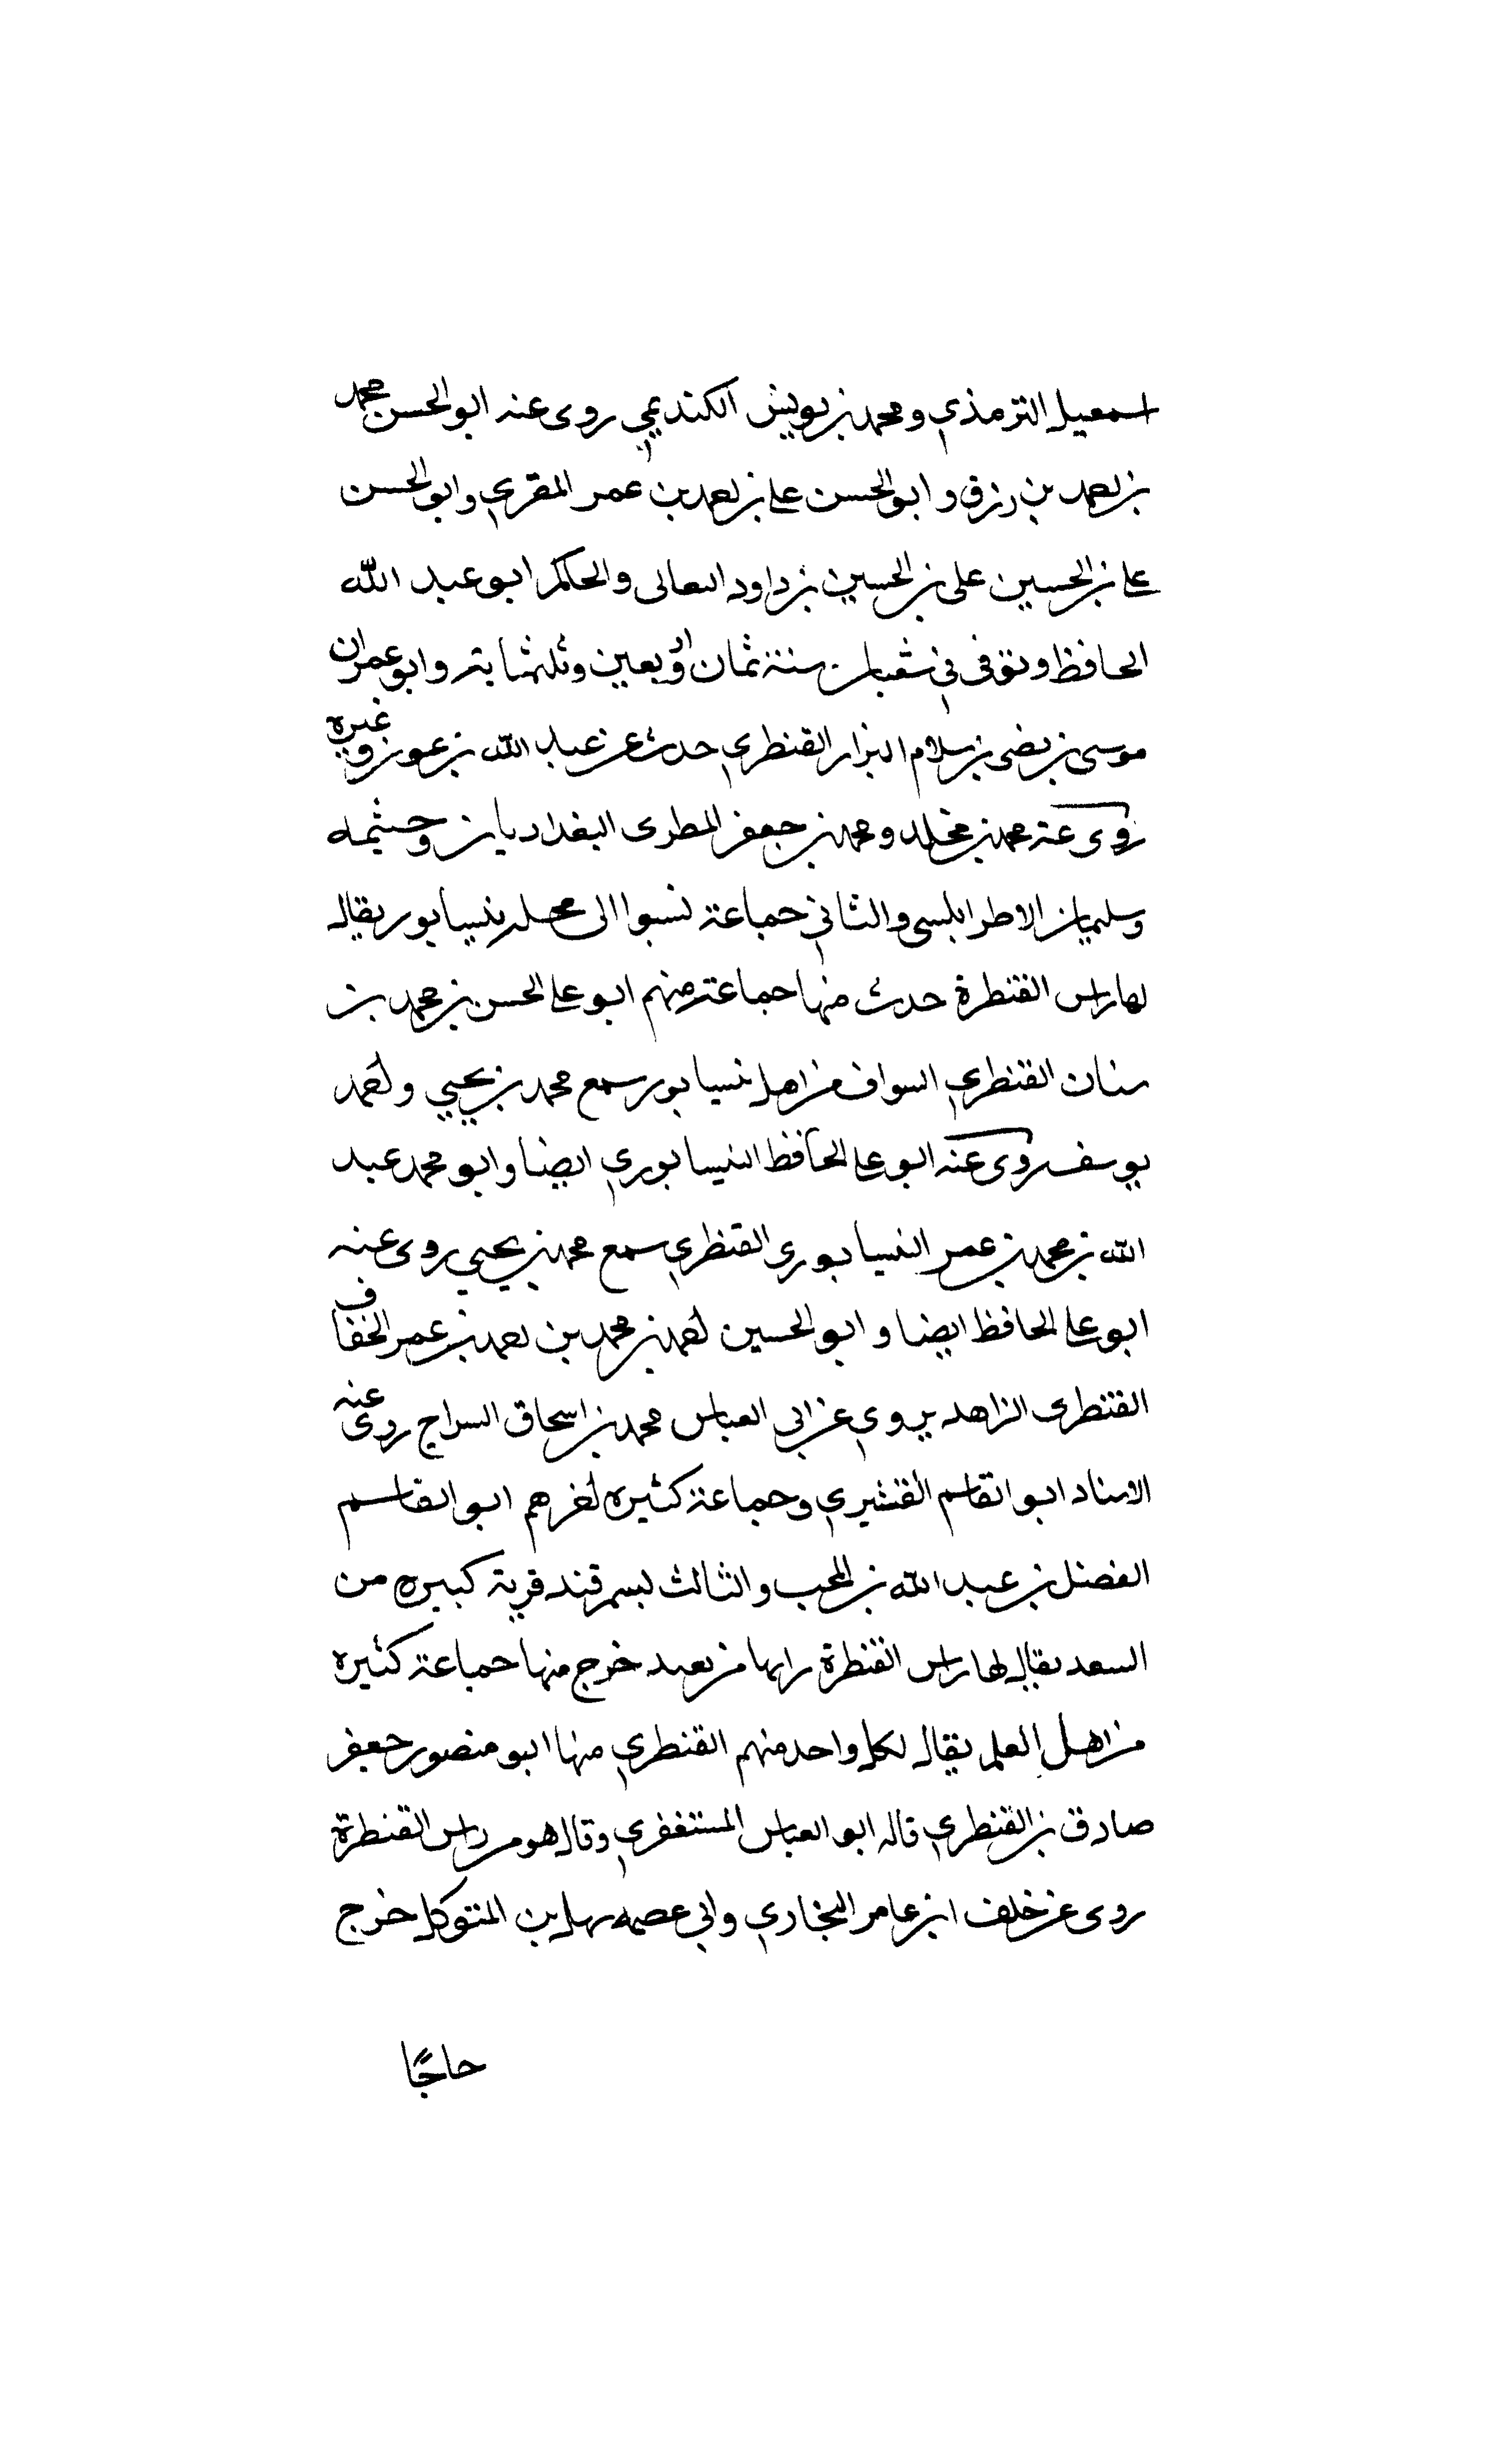 اسمعيل الترمذي ومحمد بن يونس الكديمي روى عنه ابو الحسن محمد
بن احمد بن رزق وابو الحسن على بن احمد بن عمر المقري وابو الحسن
على بن الحسين على بن الحسين بن داود العالى والحاكم ابو عبد الله
الحافظ وتوفى في شعبان سنة ثمان اربعين وثلثماية وابو عمران
موسى بن نصر بن سلام البزار القنطري حدث عن عبد الله بن عون وغيره
روى عنه محمد بن مخلد ومحمد بن جعفر المطرى البغداديان وخيثمه
وسليمان الاطرابلسى والثاني جماعة نسبوا الى محله بنيسابور يقال
لها راس القنطرة حدث منها جماعة منهم ابو على الحسن بن محمد بن
سنان القنطري السواق من اهل نيسابور سمع محمد بن يحيي واحمد
يوسف روى عنه ابو على الحافظ النيسابوري ايضا وابو محمد عبد
الله بن محمد بن عمر النيسابورى القنطري سمع محمد بن يحيي روى عنه
ابو على الحافظ ايضا وابو الحسين احمد بن محمد بن احمد بن عمر الخفاف
القنطرى الزاهد يروي عن ابي العباس محمد بن اسحاق السراج روى عنه
الاستاد ابو القاسم القشيري وجماعة كثيره اخرهم ابو القاسم
الفضل بن عبد الله بن المحب والثالث بسمرقند قرية كبيره من
السعد يقال لها راس القنطرة رايها من بعيد خرج منها جماعة كثيره
من اهل العلم يقال لكل واحد منهم القنطري منها ابو منصور جعفر
صادق بن القنطري قاله ابو العباس المستغفري وقال هو من راس القنطرة
روى عن خلف ابن عامر البخاري وابي عصمه سهل بن المتوكل خرج
حاجًا